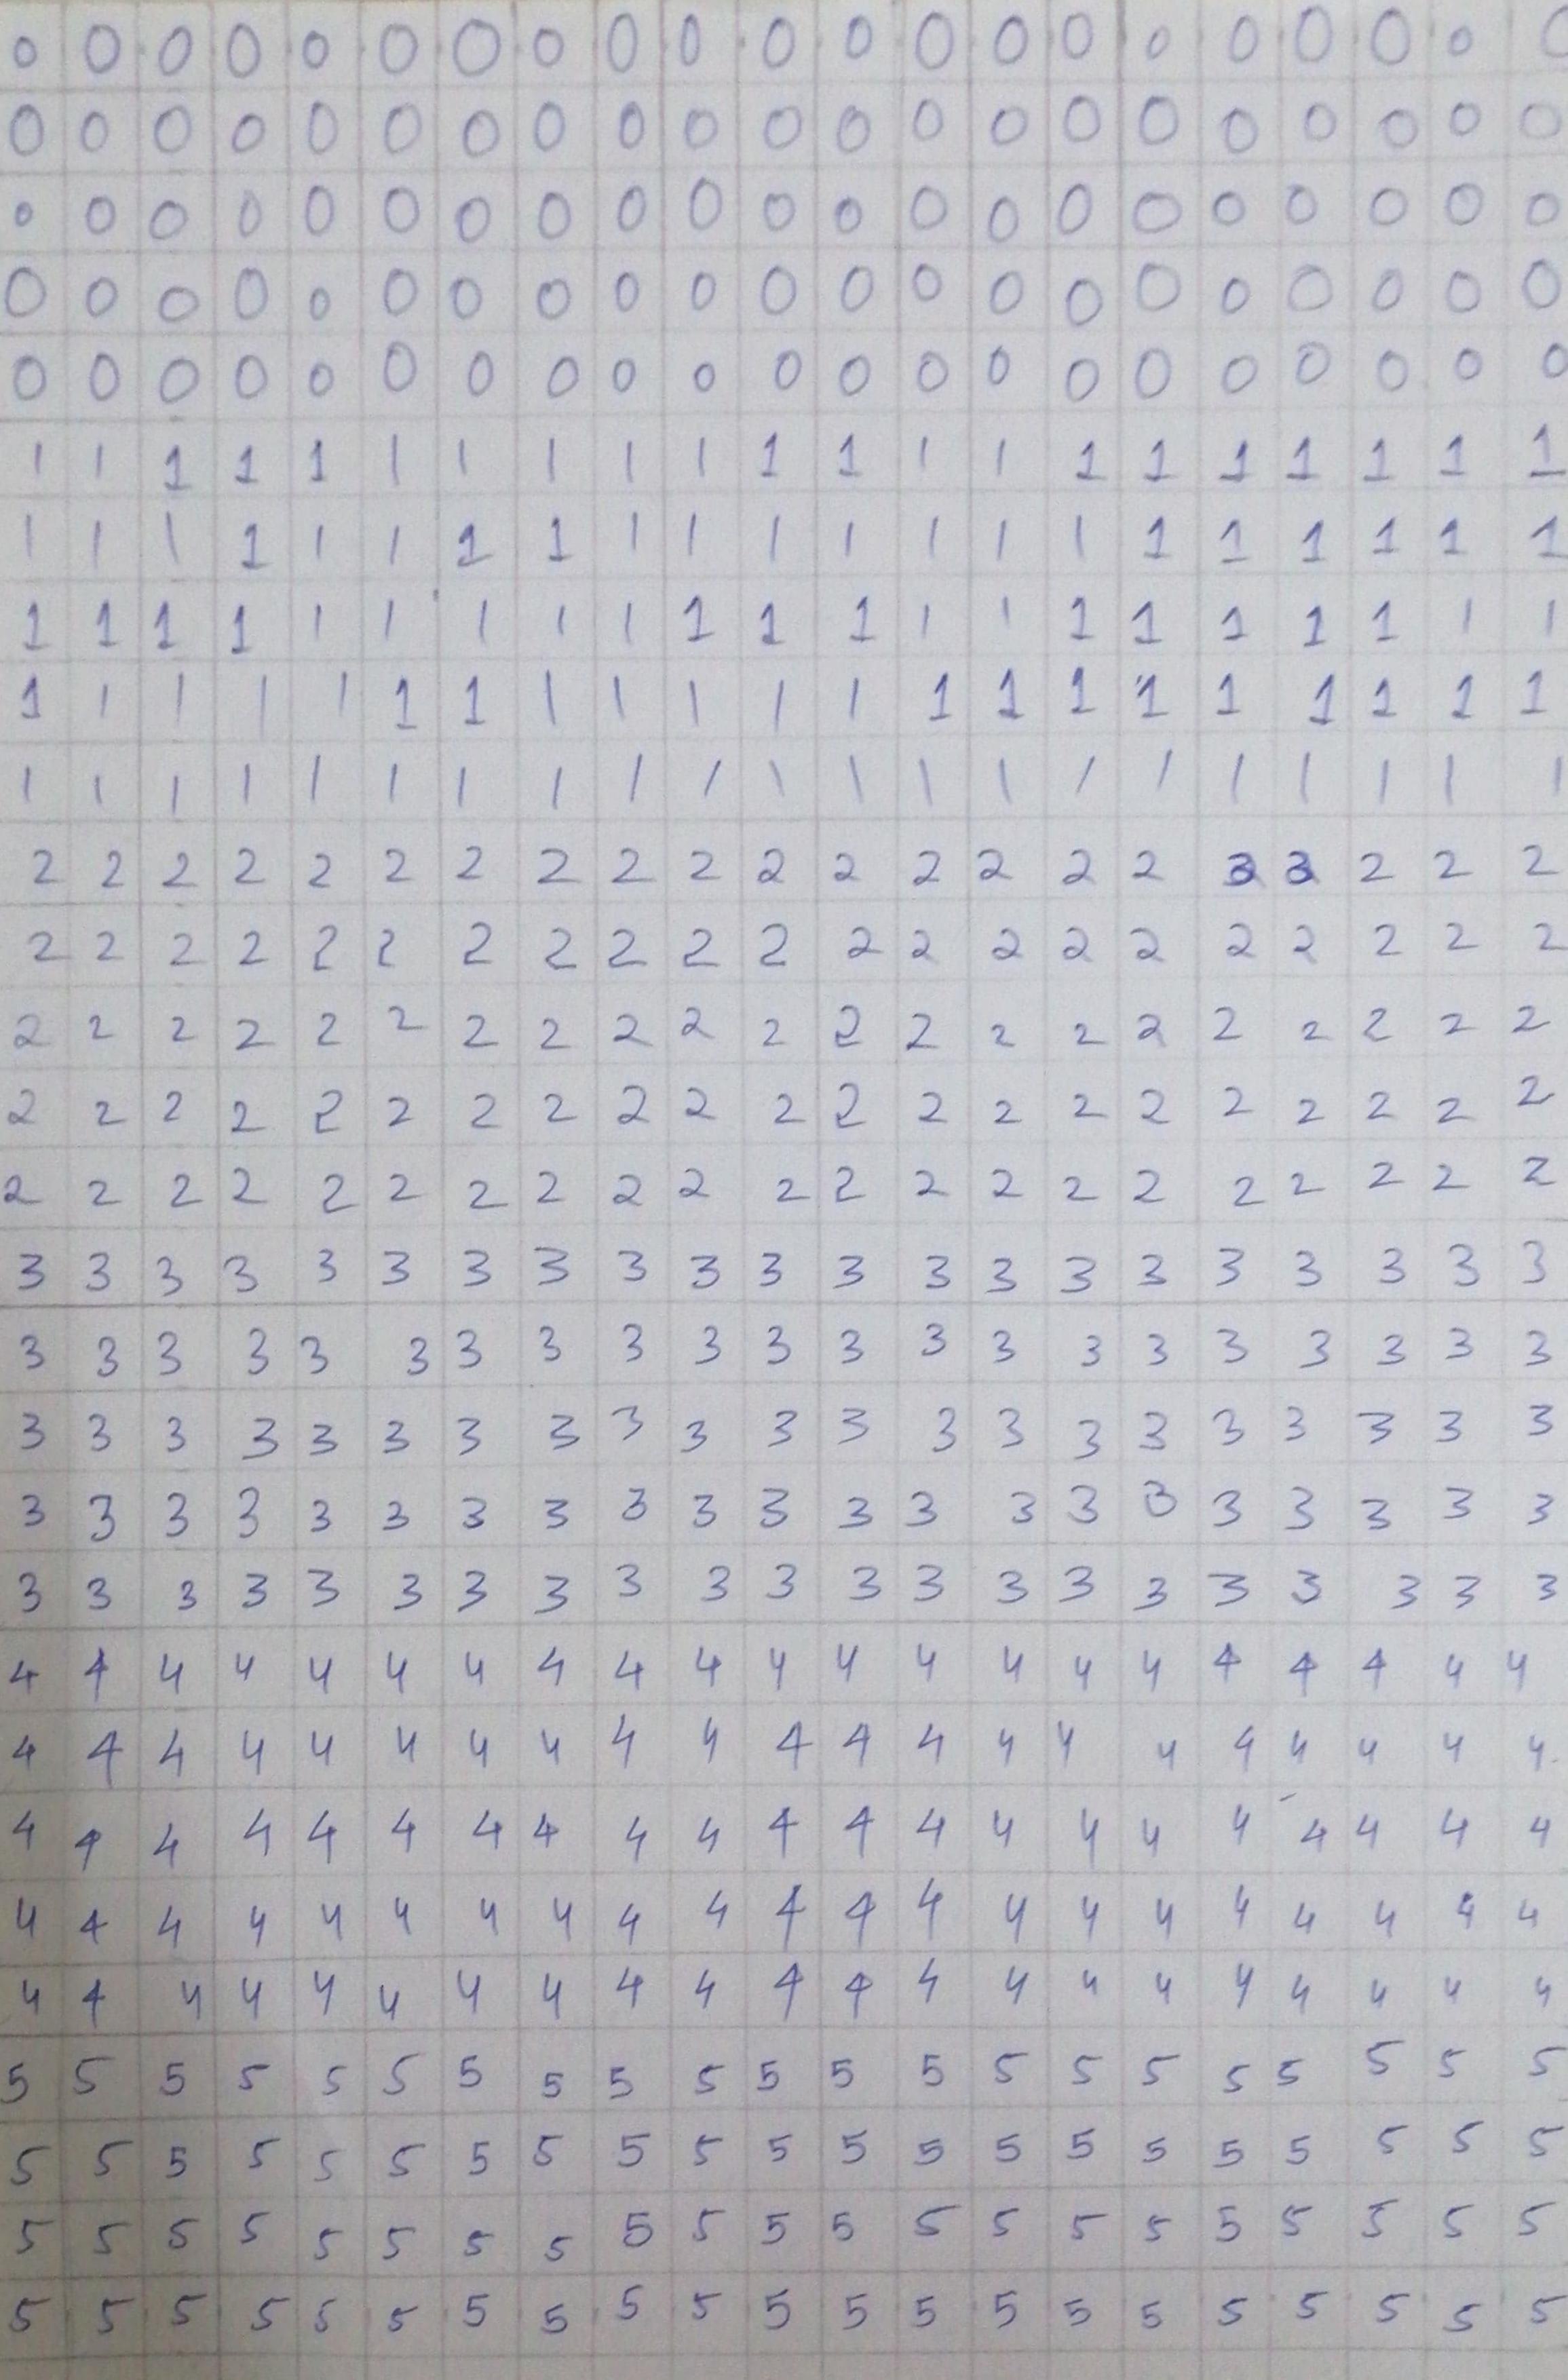 0 0 0 0 0 0 0 0 0 0 0 0 0 0 0 0 0 0 0 0 0
0 0 0 0 0 0 0 0 0 0 0 0 0 0 0 0 0 0 0 0 0
0 0 0 0 0 0 0 0 0 0 0 0 0 0 0 0 0 0 0 0 0
0 0 0 0 0 0 0 0 0 0 0 0 0 0 0 0 0 0 0 0 0
0 0 0 0 0 0 0 0 0 0 0 0 0 0 0 0 0 0 0 0 0
1 1 1 1 1 1 1 1 1 1 1 1 1 1 1 1 1 1 1 1 1
1 1 1 1 1 1 1 1 1 1 1 1 1 1 1 1 1 1 1 1 1
1 1 1 1 1 1 1 1 1 1 1 1 1 1 1 1 1 1 1 1 1
1 1 1 1 1 1 1 1 1 1 1 1 1 1 1 1 1 1 1 1 1
1 1 1 1 1 1 1 1 1 1 1 1 1 1 1 1 1 1 1 1 1
2 2 2 2 2 2 2 2 2 2 2 2 2 2 2 2 3 3 2 2 2
2 2 2 2 2 2 2 2 2 2 2 2 2 2 2 2 2 2 2 2 2
2 2 2 2 2 2 2 2 2 2 2 2 2 2 2 2 2 2 2 2 2
2 2 2 2 2 2 2 2 2 2 2 2 2 2 2 2 2 2 2 2 2
2 2 2 2 2 2 2 2 2 2 2 2 2 2 2 2 2 2 2 2 2
3 3 3 3 3 3 3 3 3 3 3 3 3 3 3 3 3 3 3 3 3
3 3 3 3 3 3 3 3 3 3 3 3 3 3 3 3 3 3 3 3 3
3 3 3 3 3 3 3 3 3 3 3 3 3 3 3 3 3 3 3 3 3
3 3 3 3 3 3 3 3 3 3 3 3 3 3 3 3 3 3 3 3 3
3 3 3 3 3 3 3 3 3 3 3 3 3 3 3 3 3 3 3 3 3
4 4 4 4 4 4 4 4 4 4 4 4 4 4 4 4 4 4 4 4 4
4 4 4 4 4 4 4 4 4 4 4 4 4 4 4 4 4 4 4 4 4
4 4 4 4 4 4 4 4 4 4 4 4 4 4 4 4 4 4 4 4 4
4 4 4 4 4 4 4 4 4 4 4 4 4 4 4 4 4 4 4 4 4
4 4 4 4 4 4 4 4 4 4 4 4 4 4 4 4 4 4 4 4 4
5 5 5 5 5 5 5 5 5 5 5 5 5 5 5 5 5 5 5 5 5
5 5 5 5 5 5 5 5 5 5 5 5 5 5 5 5 5 5 5 5 5
5 5 5 5 5 5 5 5 5 5 5 5 5 5 5 5 5 5 5 5 5
5 5 5 5 5 5 5 5 5 5 5 5 5 5 5 5 5 5 5 5 5